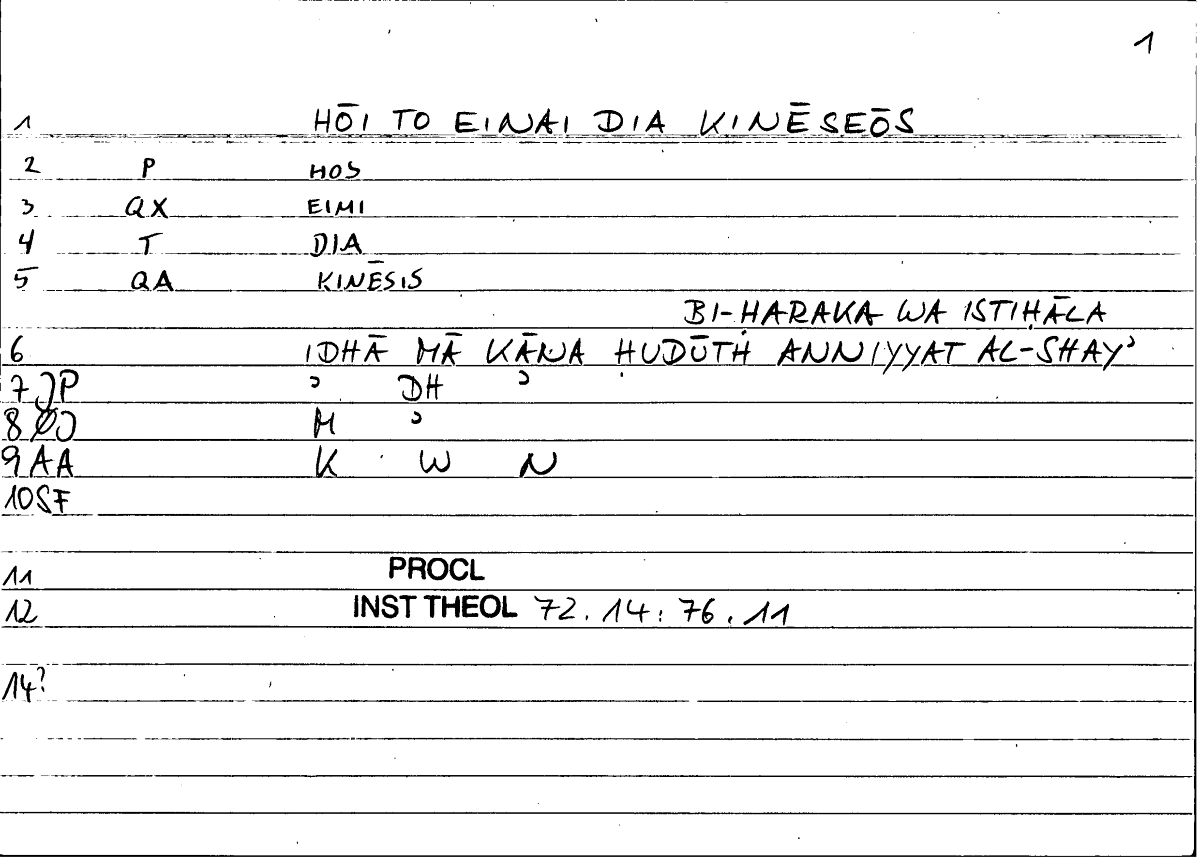 1
1 HŌI TO EINAI DIA KINĒSEŌS
2 P HOS
3 QX EIMI
4 T DIA
5 QA KINĒSIS
BI-ḤARAKA WA ISTIḤĀLA
6 IDHĀ MĀ KĀNA ḤUDŪTH ANNIYYAT AL-SHAYʾ
7 JP ʾ DH ʾ
8 ØJ M ʾ
9 AA K W N
10 SF
11 PROCL
12 INST THEOL 72.14:76.11
14?